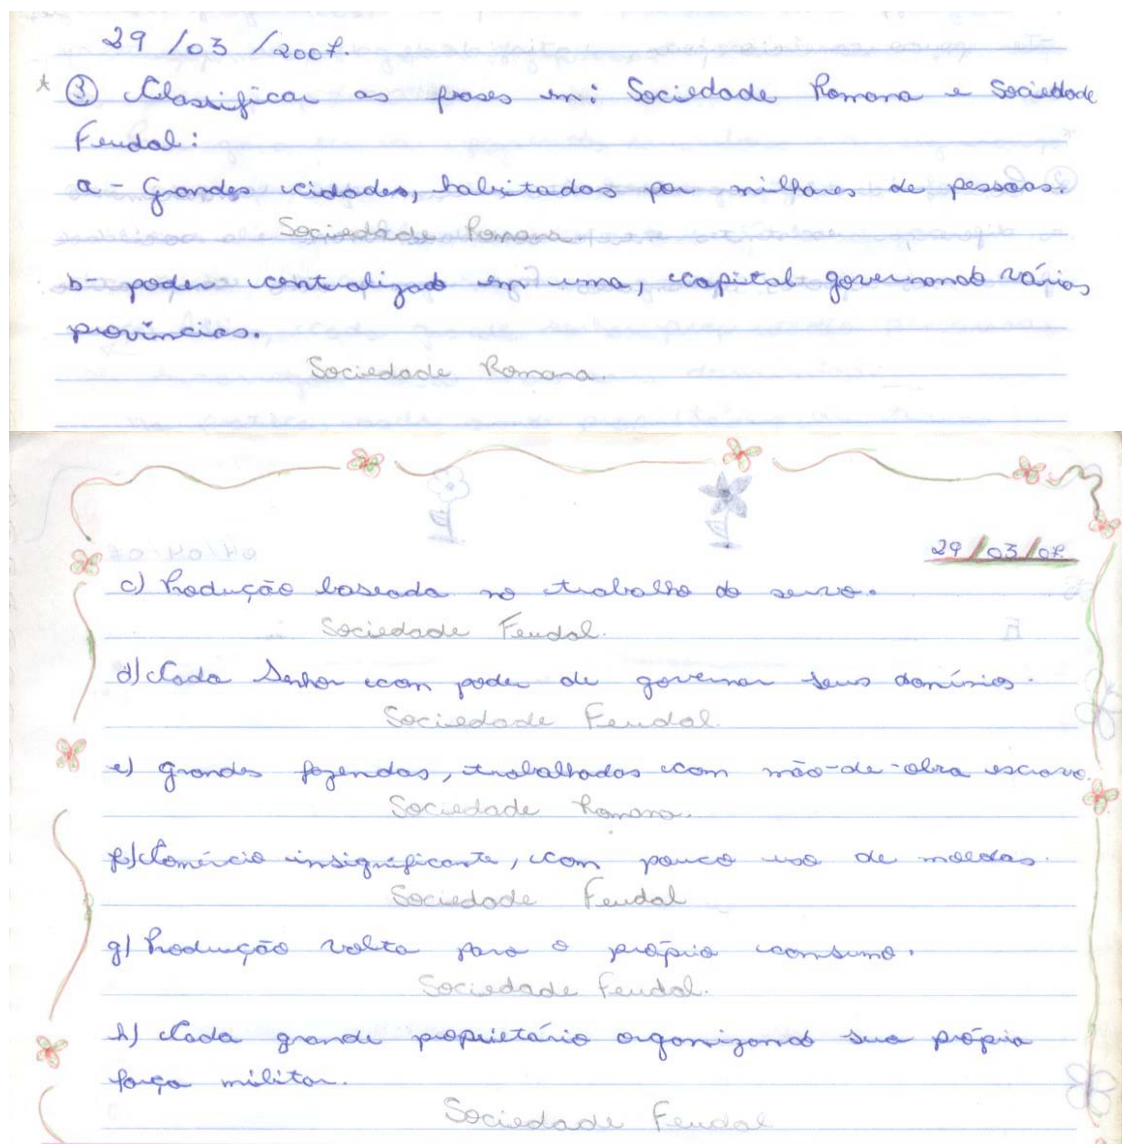 29/03/2007.
* ③ Classificar as frases em: Sociedade Romana e Sociedade
Feudal:
a- Grandes cidades, habitadas por milhares de pessoas.
Sociedade Romana.
b- poder centralizado em uma, capital governando vários
províncias.
Sociedade Romana.
29/03/07
c) Produção baseada no trabalho do servo.
Sociedade Feudal.
d) Cada Senhor com poder de governar seus domínios.
Sociedade Feudal.
e) grandes fazendas, trabalhadas com mão-de-obra escrava.
Sociedade Romana.
f) Comércio insignificante, com pouco uso de moedas.
Sociedade Feudal
g) Produção volta para o próprio consumo.
Sociedade Feudal.
h) Cada grande proprietário organizando sua própria
força militar.
Sociedade Feudal